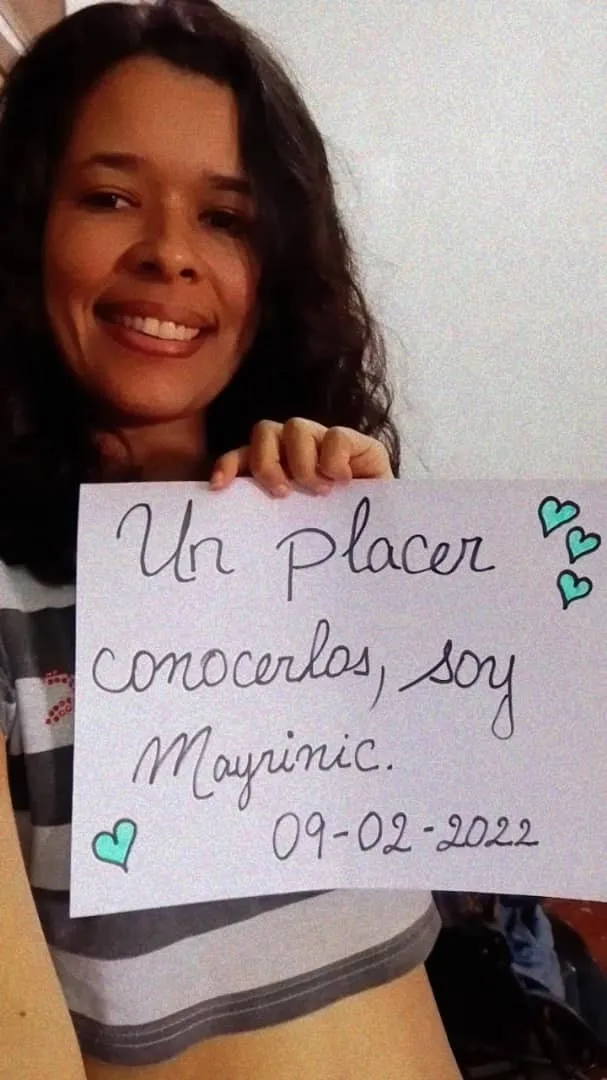 Un placer
conocerlos, soy
Mayrinic.
09-02-2022